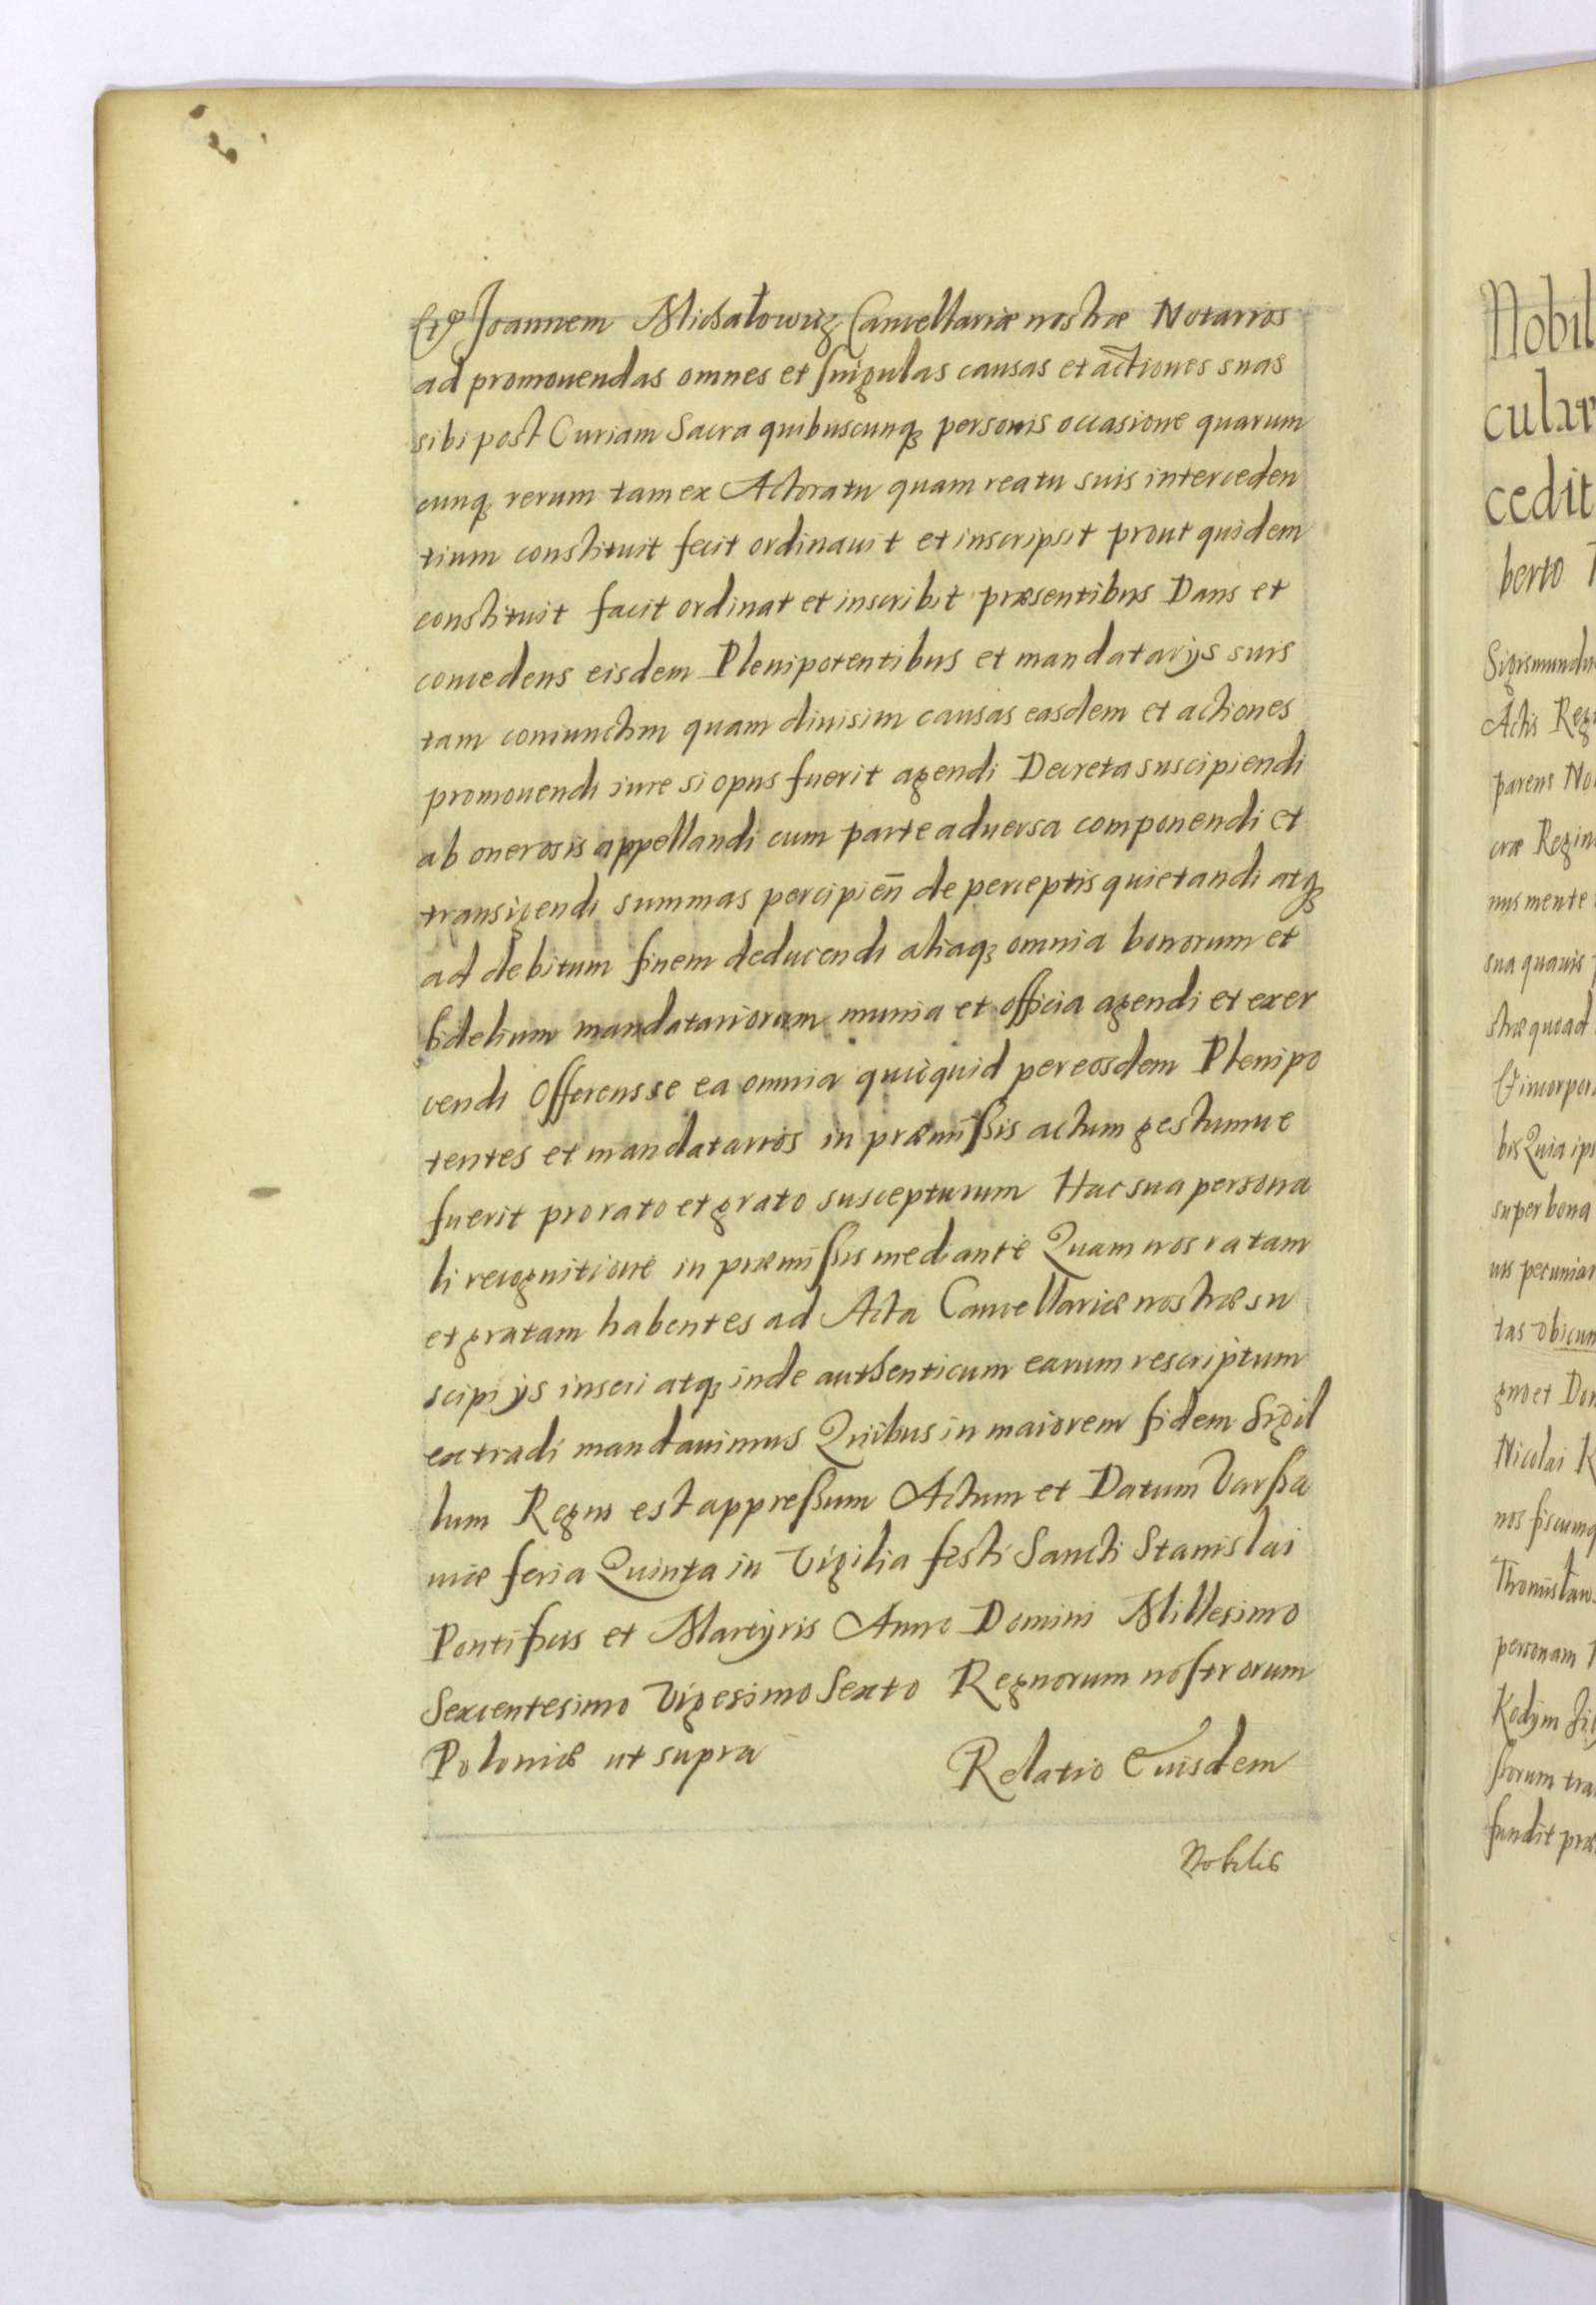 Et Joannem Michałowicz Cancellariæ nostræ Notarios
ad promouendas omnes et singulas causas et actiones suas
sibi post Curiam Sacra quibuscunq personis occasione quarum
cunq rerum tam ex Actoratu quam reatu suis interceden
tium constituit fecit ordinauit et inscripsit prout quidem
constituit facit ordinat et inscribit præsentibus Dans et
concedens eisdem Plenipotentibus et mandatarijs suis
tam coniunctim quam diuisim causas easdem et actiones
promouendi iure si opus fuerit agendi Decreta suscipiendi
ab onerosis appellandi cum parte aduersa componendi et
transigendi summas percipien̄ de perceptis quietandi atq
ad debitum finem deducendi aliaq omnia bonorum et
fidelium mandatariorum munia et officia agendi et exer
cendi Offerens se ea omnia quicquid per eosdem Plenipo
tentes et mandatarios in præmissis actum gestumue
fuerit pro rato et grato suscepturum Hac sua persona
li recognitione in præmissis mediante Quam nos ratam
et gratam habentes ad Acta Cancellariæ nostræ su
scipi ijs inseri atq inde authenticum earum rescriptum
extradi mandauimus Quibus in maiorem fidem Sigil
lum Regni est appressum Actum et Datum Varsa
uiæ feria Quinta in Vigilia festi Sancti Stanislai
Pontificis et Martyris Anno Domini Millesimo
Sexcentesimo Vigesimo Sexto Regnorum nostrorum
Poloniæ ut supra Relatio Eiusdem
Nobilis
Nobil
cular
cedit
berto
Sigismundu
Actis Reg
parens No
cræ Regin
nus mente
sua quauis
stræ quoad
Et incorpor
bis Quia ips
super bona
uis pecuniar
tas Vbicun
gno et Dom
Nicolai K
nos fiscumq
Thomisław
personam
Kodym
sorum tra
fundit præ